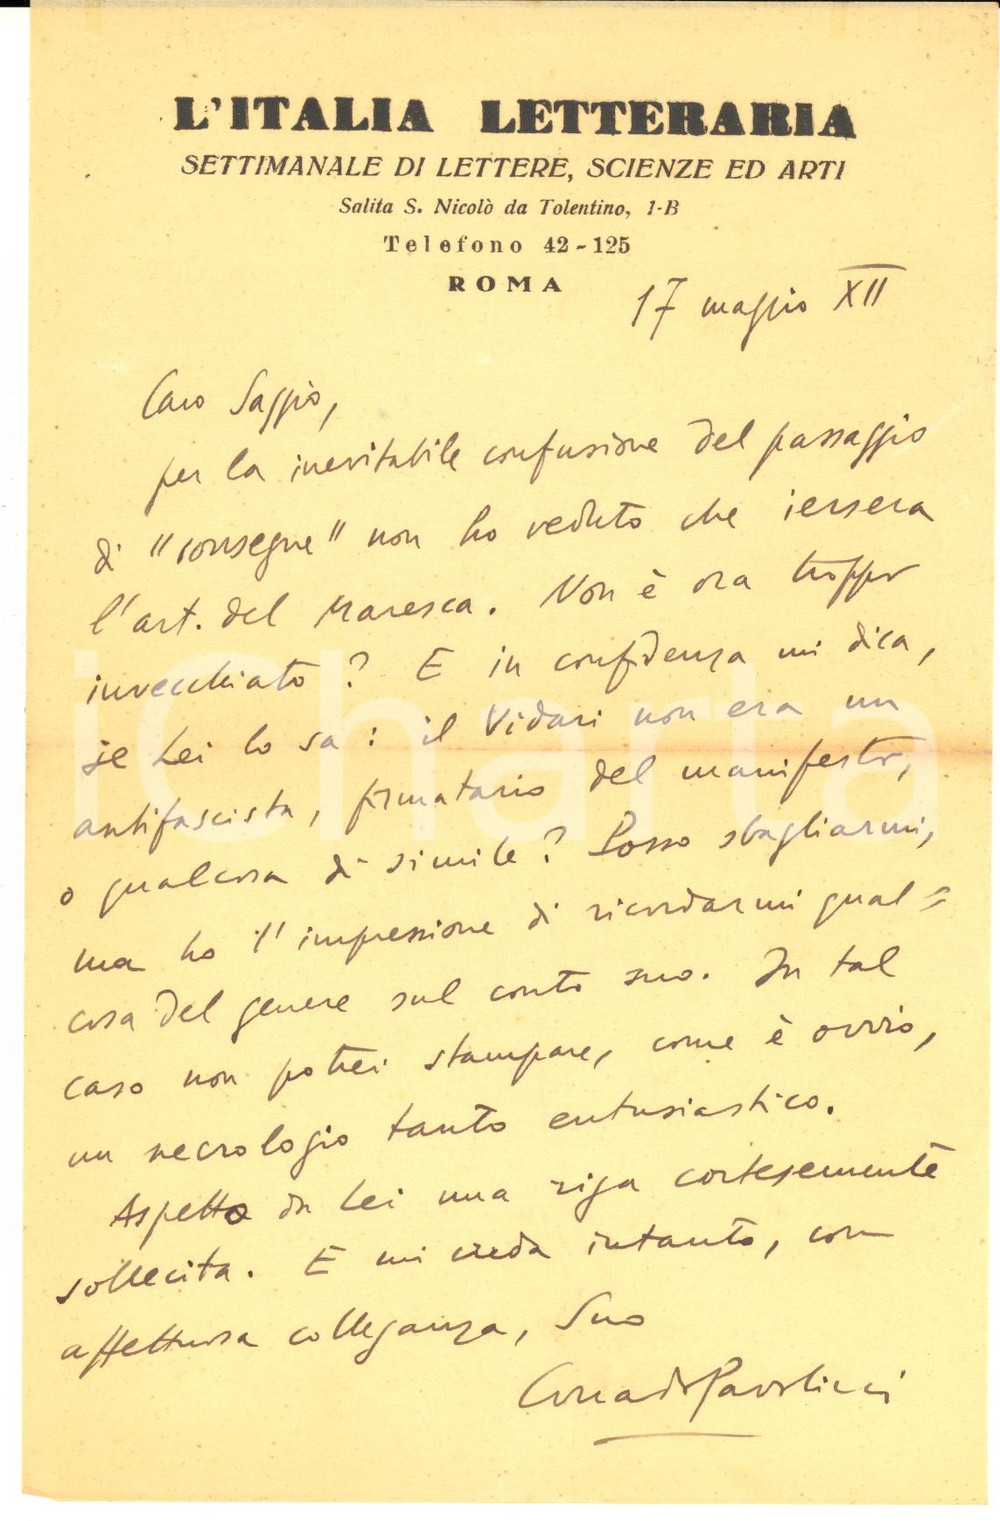 L'ITALIA LETTERARIA
SETTIMANALE DI LETTERE, SCIENZE ED ARTI
Salita S. Nicolò da Tolentino, 1-B
Telefono 42-125
ROMA
17 maggio XII
Caro Saggio,
per la inevitabile confusione del passaggio
di "consegne" non ho veduto che iersera
l'art. del Maresca. Non è ora troppo
invecchiato? E in confidenza mi dica,
se Lei lo sa: il Vidari non era un
antifascista, firmatario del manifesto,
o qualcosa di simile? Posso sbagliarmi,
ma ho l'impressione di ricordarmi qual=
cosa del genere sul conto suo. In tal
caso non potrei stampare, come è ovvio,
un necrologio tanto entusiastico.
Aspetto da Lei una riga cortesemente
sollecita. E mi creda intanto, con
affettuosa colleganza, Suo
Corrado Pavolini
iCharta